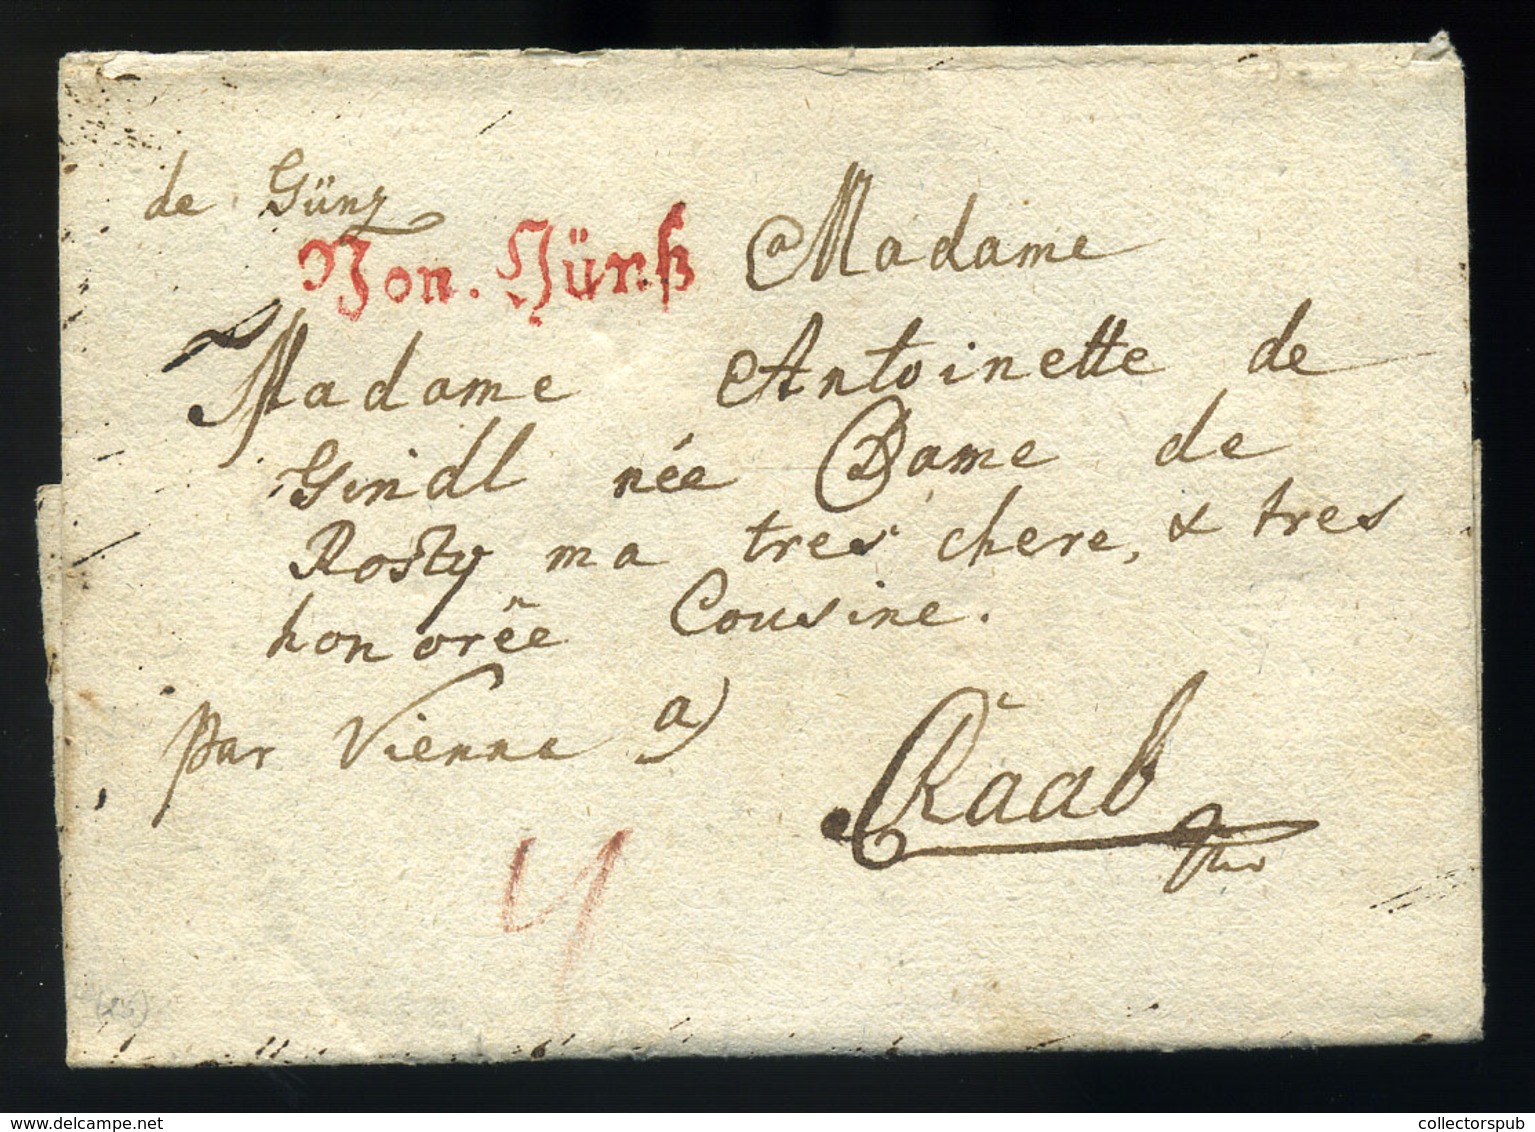 de Günz
Von. Günß
a Madame
Madame Antoinette de
Gindl née Dame de
Rosty ma tres chere, & tres
honorēe Cousine.
par Vienna a)
Raab
4
the-delcampe.net
collectorspub